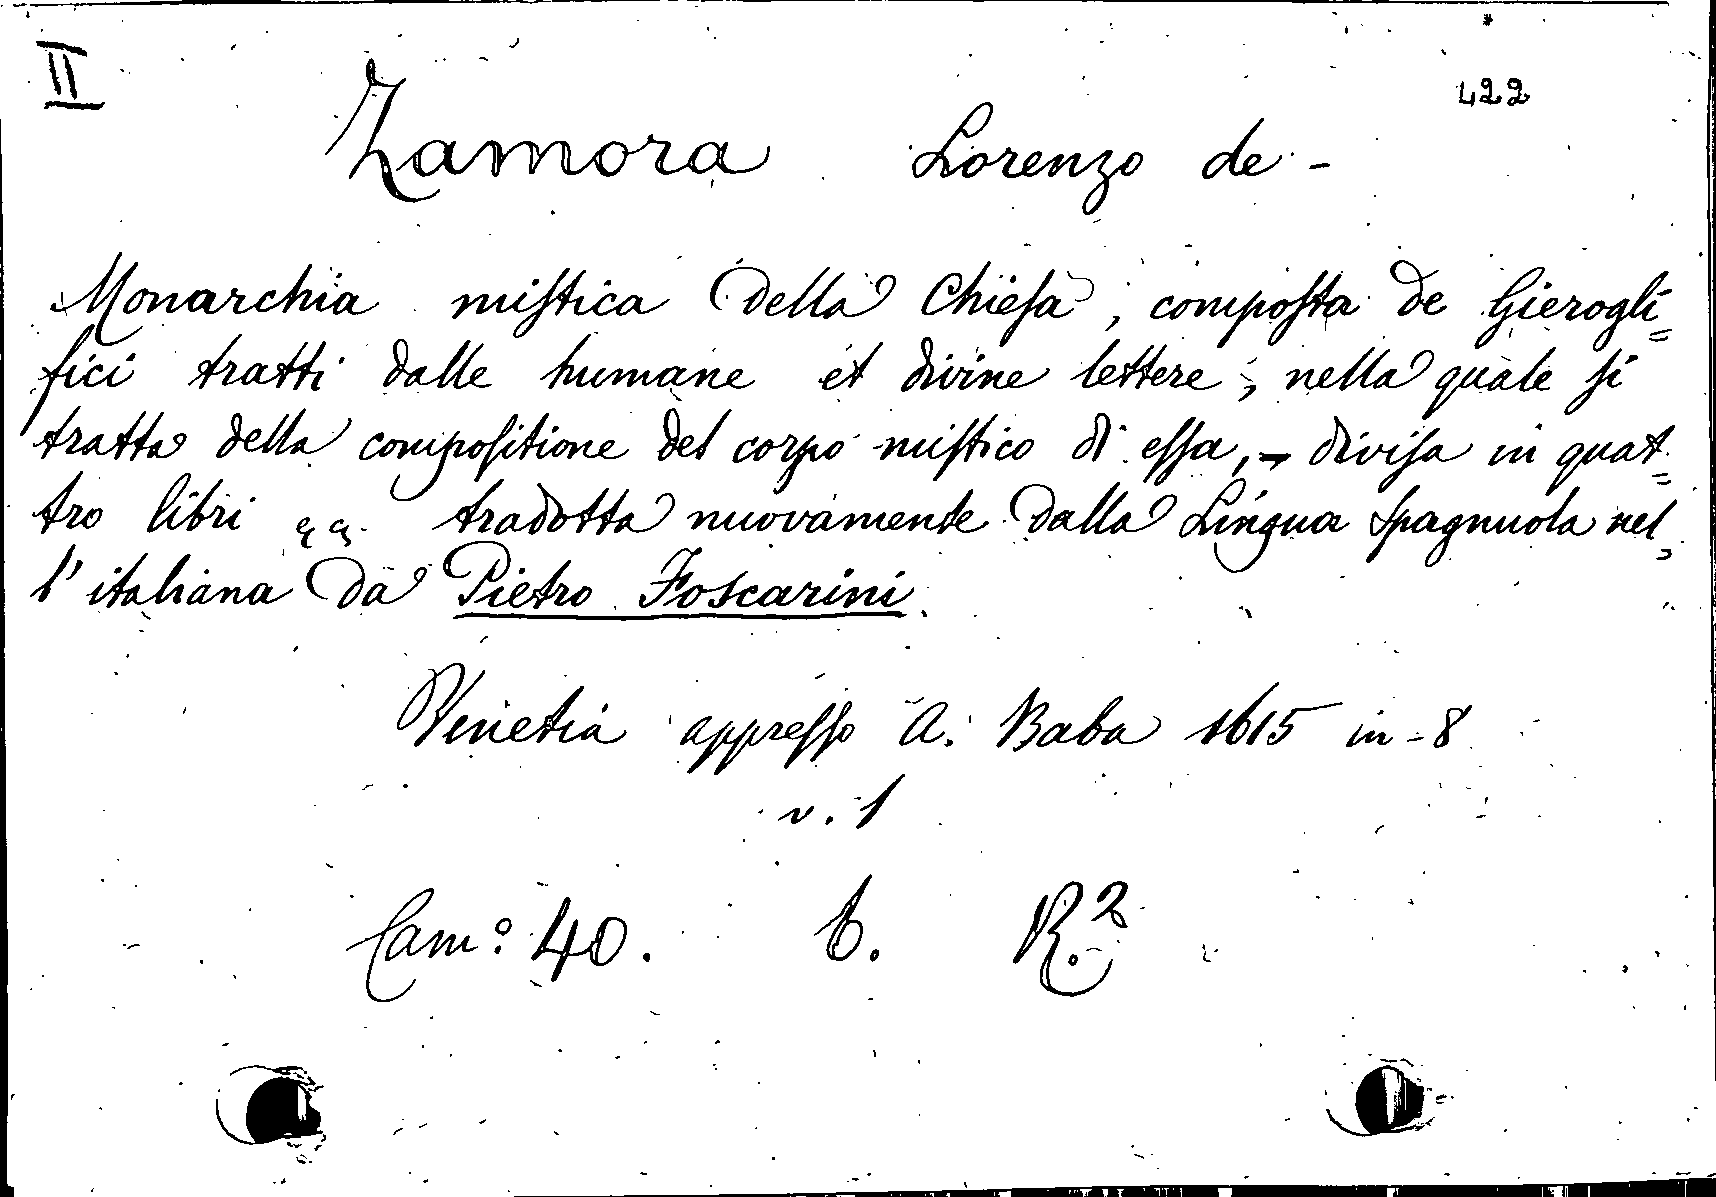 II
422
Zamora Lorenzo de -
Monarchia miſtica della Chieſa, compoſta de Gierogli=
fici tratti dalle humane et divine lettere; nella quale ſi
tratta della compoſitione del corpo miſtico di eſſa, - diviſa in quat=
tro libri tradotta nuovamente dalla Lingua Spagnuola nel=
l' italiana da Pietro Foscarini.
Venetia appreſſo A. Baba 1615 in-8
v. 1
Cam: 40. b. R.2